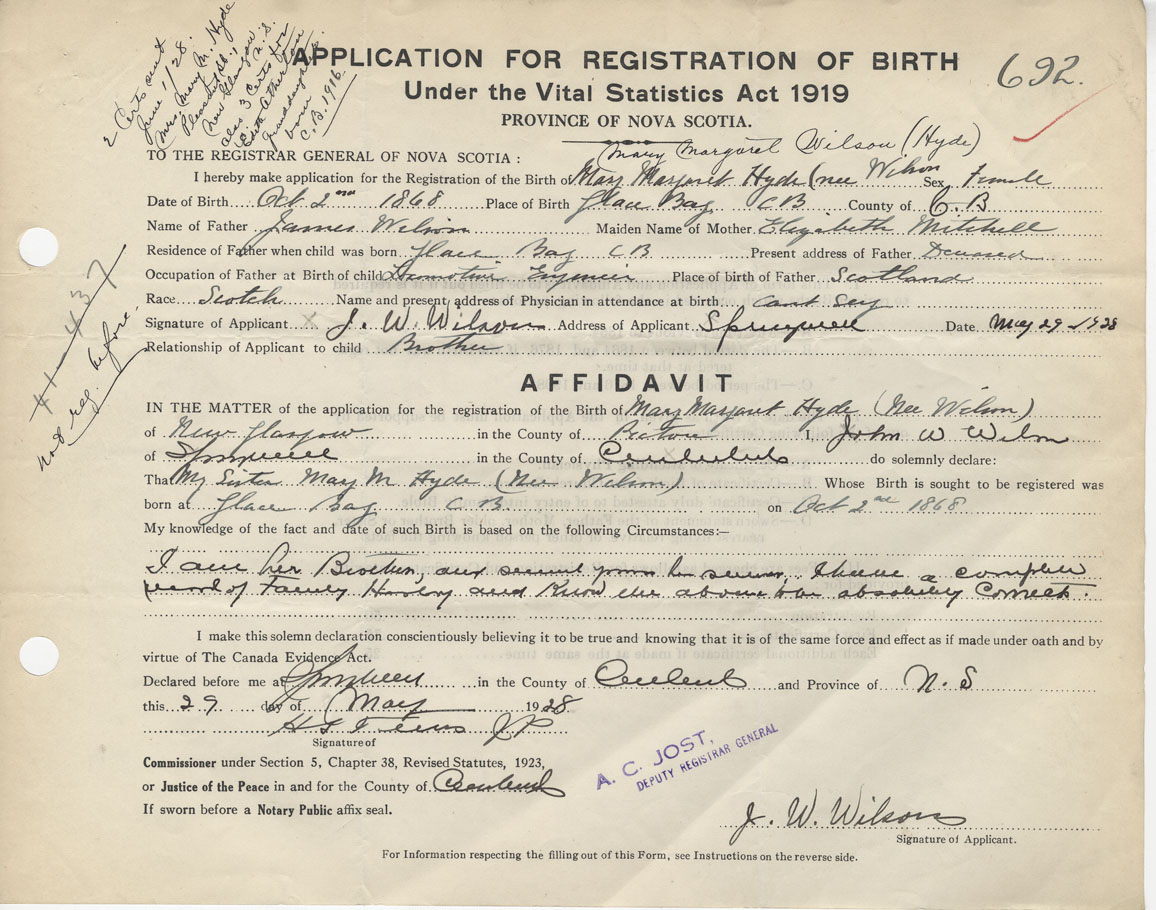 2 Certs sent
June 1/28.
Mrs. Mary M. Hyde
Pleasant St.,
New Glasgow, N.S.
also 3 Certs for
Edith Atherton
Granddaughter
born
C.B. 1916.
692.
APPLICATION FOR REGISTRATION OF BIRTH
Under the Vital Statistics Act 1919
PROVINCE OF NOVA SCOTIA.
Mary Margaret Wilson (Hyde)
TO THE REGISTRAR GENERAL OF NOVA SCOTIA :
I hereby make application for the Registration of the Birth of Mary Margaret Hyde (nee Wilson Sex Female
Date of Birth Oct 2nd 1868 Place of Birth Glace Bay CB County of C.B
Name of Father James Wilson Maiden Name of Mother Elizabeth Mitchell
Residence of Father when child was born Glace Bay CB Present address of Father Deceased
Occupation of Father at Birth of child Locomotive Engineer Place of birth of Father Scotland
Race Scotch Name and present address of Physician in attendance at birth cant say
Signature of Applicant X J. W. Wilson Address of Applicant Springhill Date May 29 1928
Relationship of Applicant to child Brother
not reg. before.
AFFIDAVIT
IN THE MATTER of the application for the registration of the Birth of Mary Margaret Hyde (Nee Wilson)
of New Glasgow in the County of Pictou I, John W Wilson
of Springhill in the County of Cumberland do solemnly declare:
That My Sister Mary M Hyde (Nee Wilson) Whose Birth is sought to be registered was
born at Glace Bay CB on Oct 2nd 1868
My knowledge of the fact and date of such Birth is based on the following Circumstances:—
I am her Brother, and several years her senior, I have a complete
record of Family History and Know the above to be absolutely Correct.
I make this solemn declaration conscientiously believing it to be true and knowing that it is of the same force and effect as if made under oath and by
virtue of The Canada Evidence Act.
Declared before me at Springhill in the County of Cumberland and Province of N. S
this 29 day of May 1928.
JP
Signature of
Commissioner under Section 5, Chapter 38, Revised Statutes, 1923,
or Justice of the Peace in and for the County of Cumberland
If sworn before a Notary Public affix seal.
A. C. JOST,
DEPUTY REGISTRAR GENERAL
J. W. Wilson
Signature of Applicant.
For Information respecting the filling out of this Form, see Instructions on the reverse side.